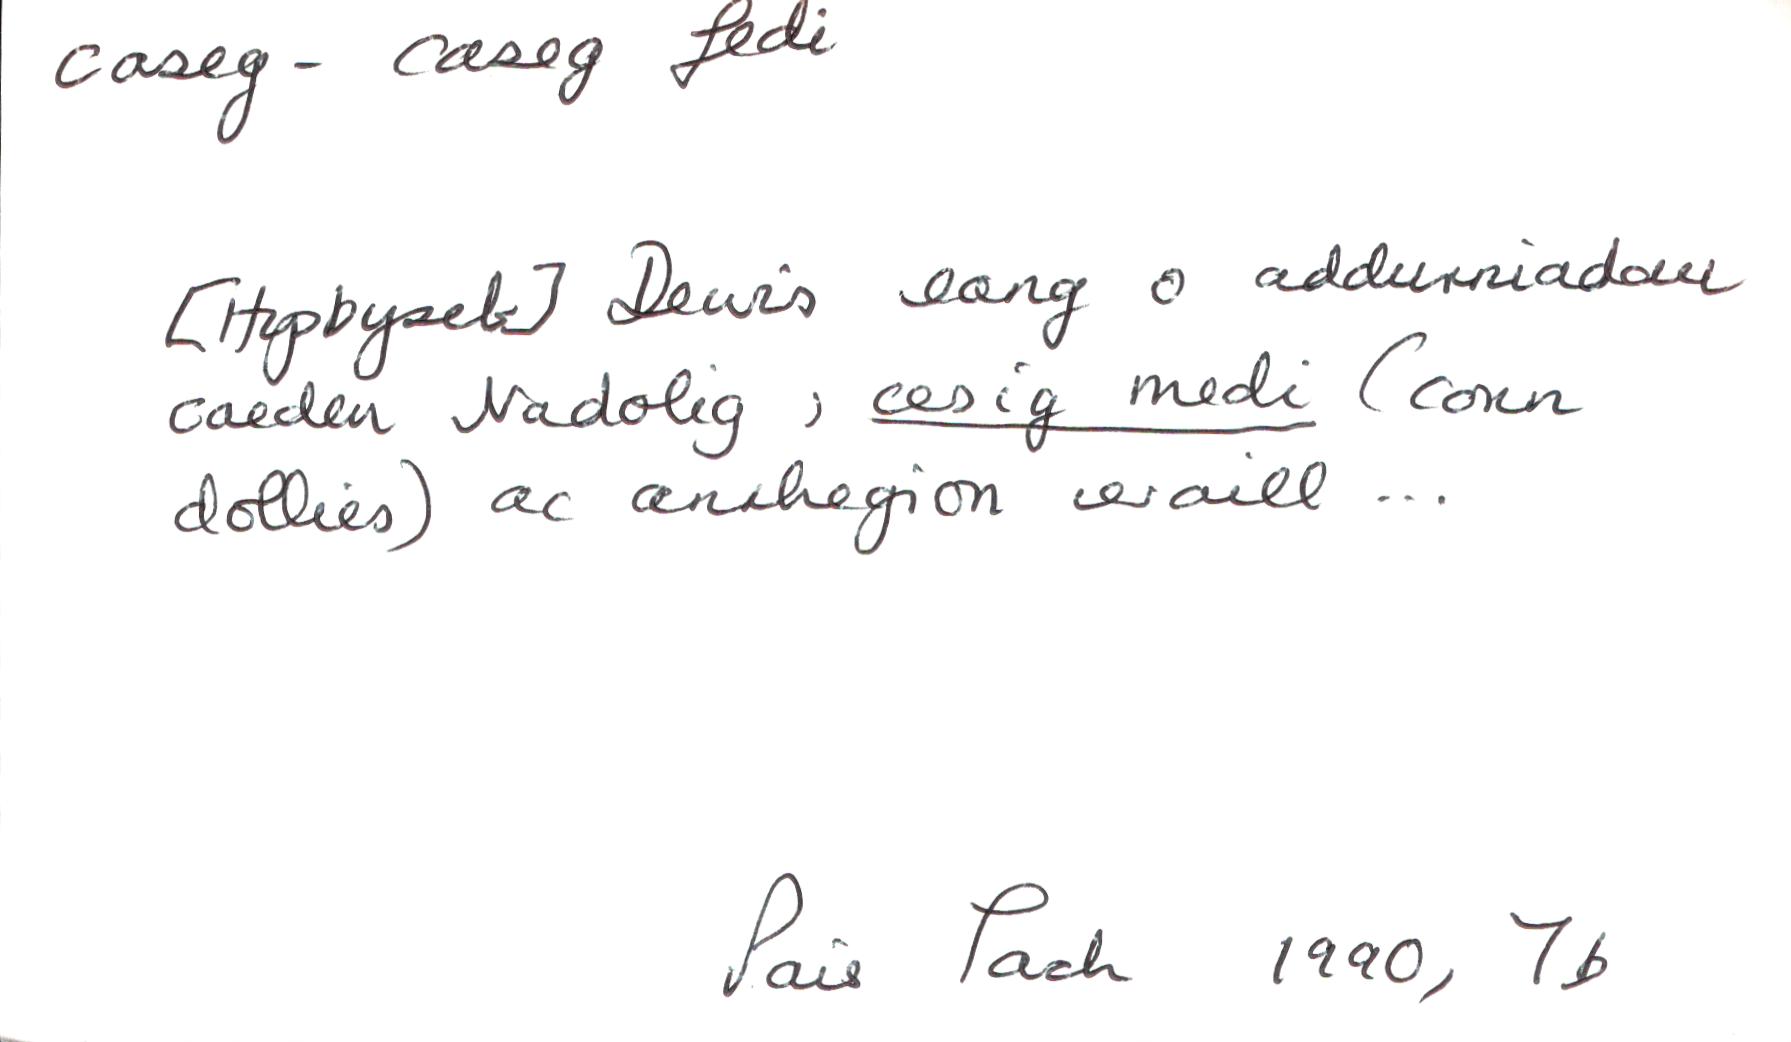 caseg - caseg fedi
[Hysbyseb] Dewis eang o addurniadau
coeden Nadolig, cesig medi (corn
dollies) ac anrhegion eraill ...
Pais Tach 1990, 7b